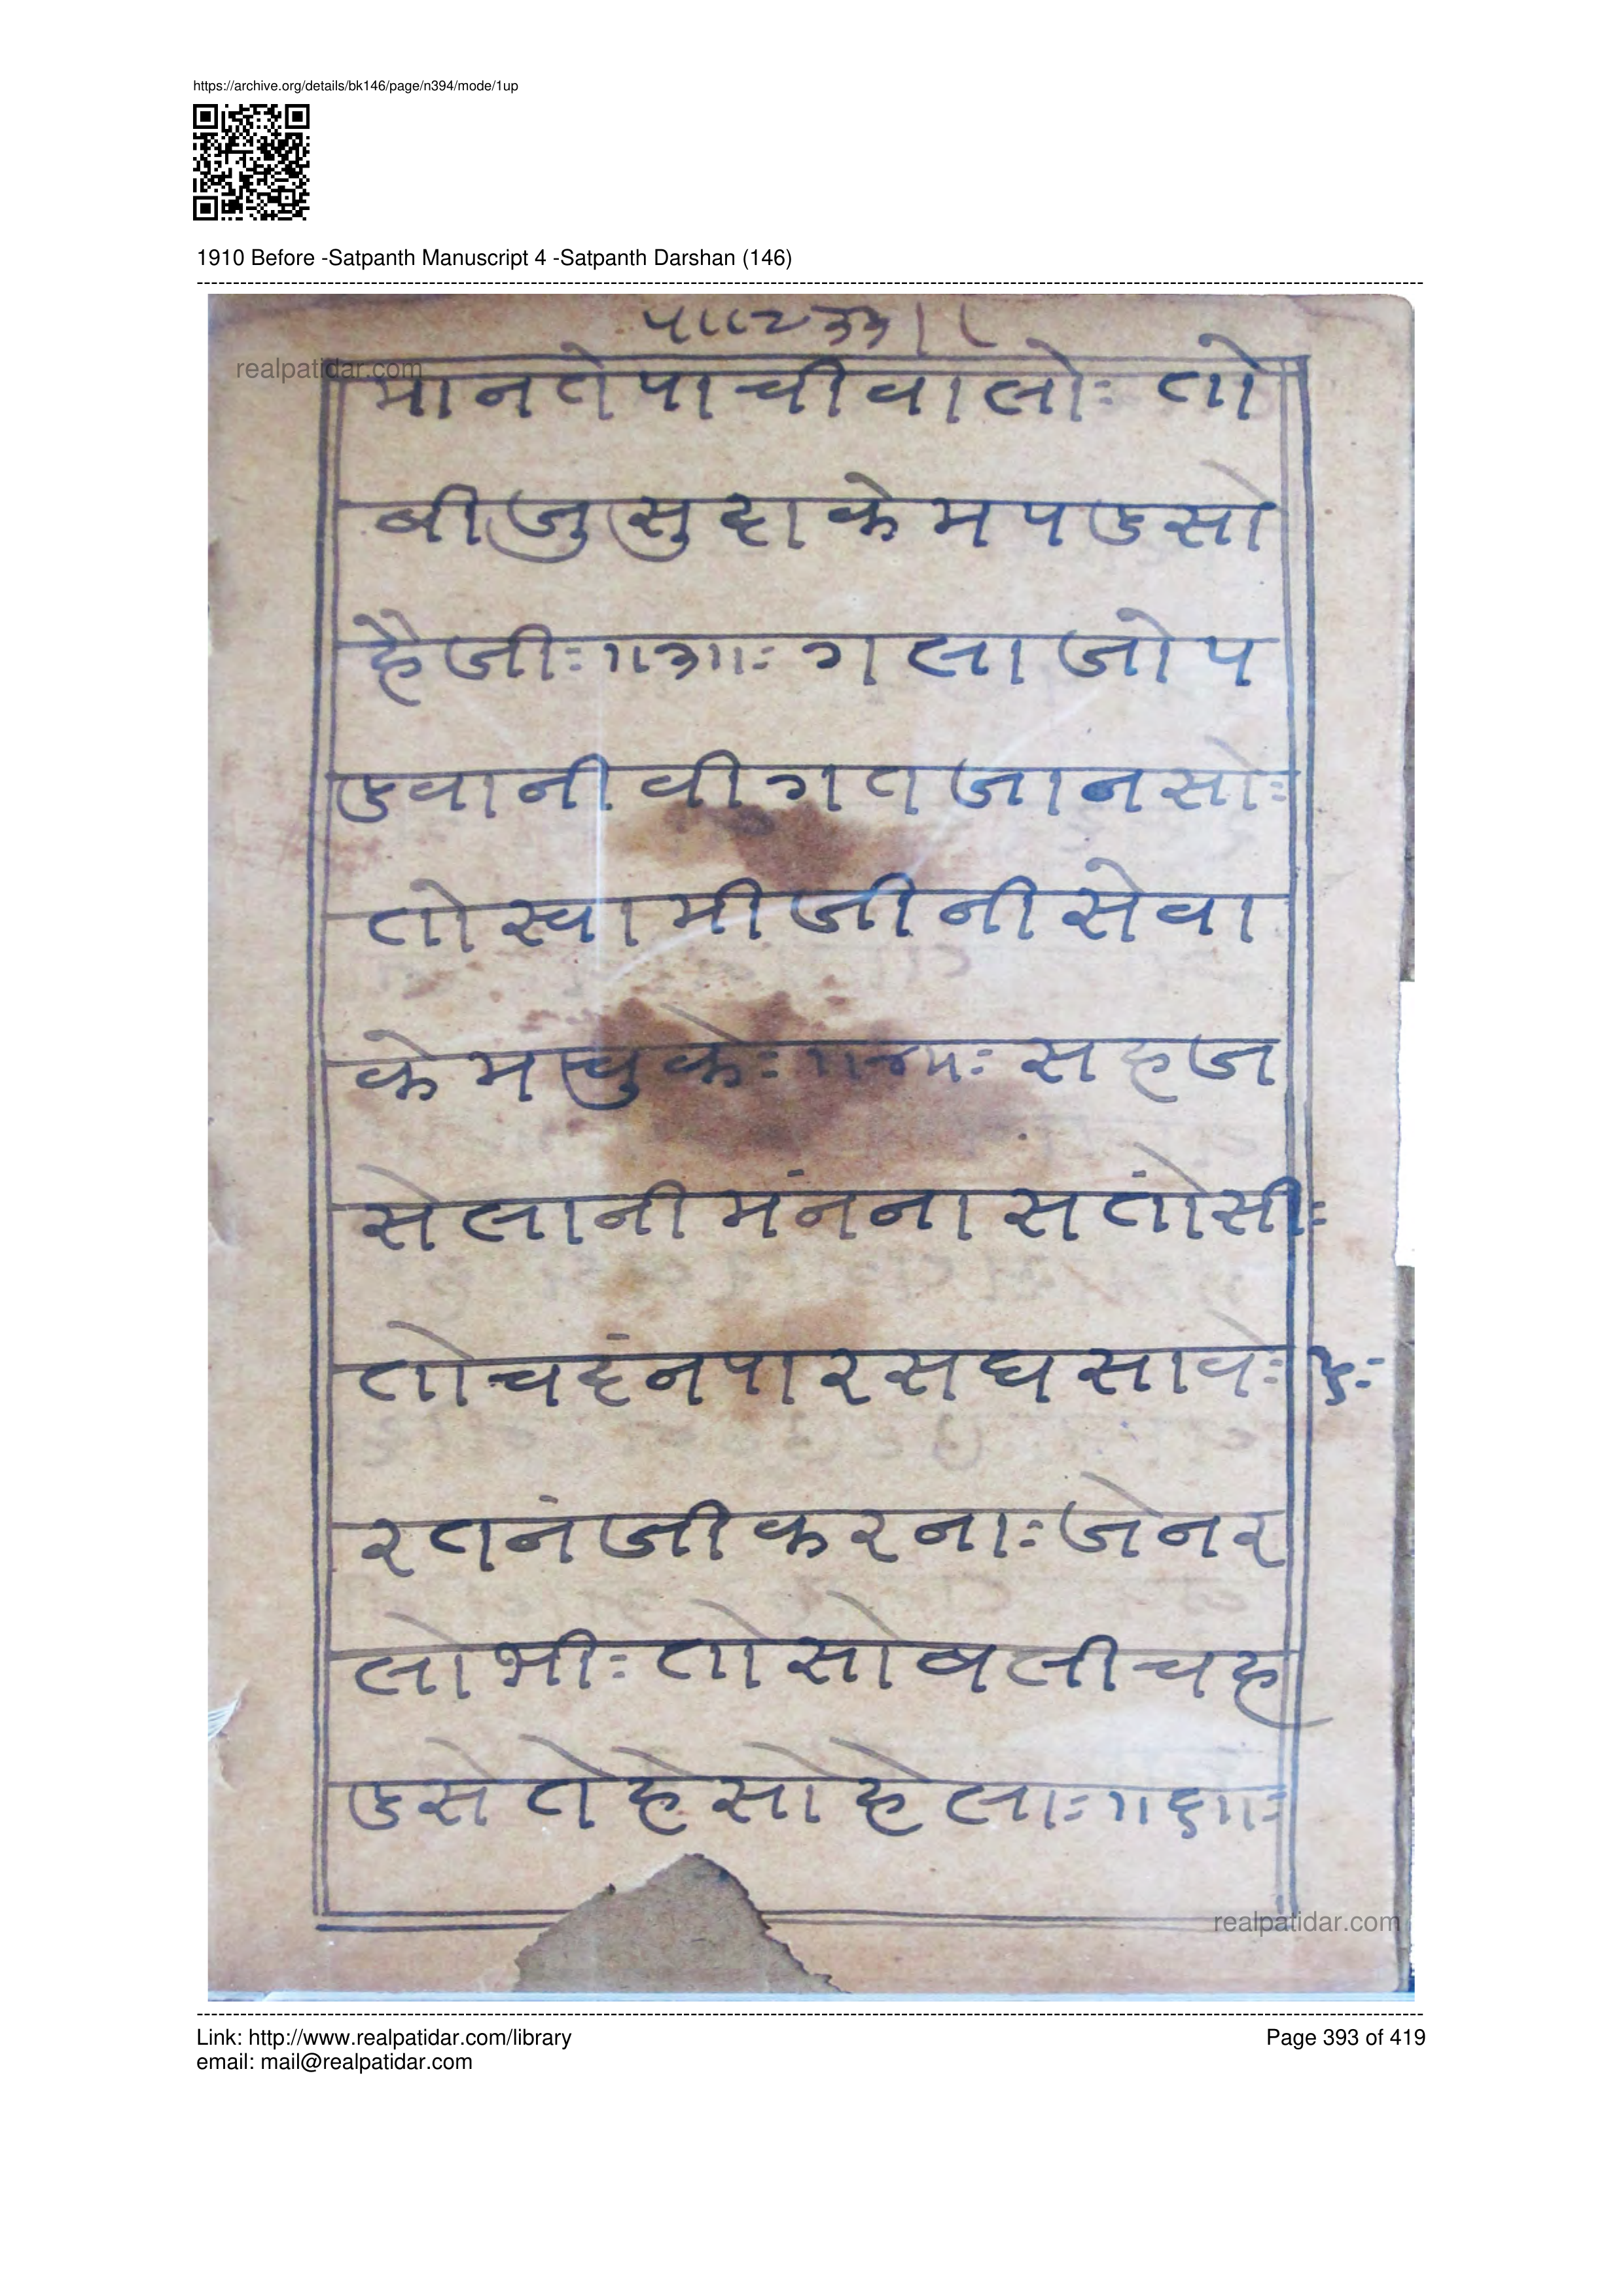 https://archive.org/details/bk146/page/n394/mode/1up
1910 Before -Satpanth Manuscript 4 -Satpanth Darshan (146)
realpatidar.com
मानतेपाचीवालोः तो
बीजुसुदाकेमपडसो
हैजीः॥३॥ः गलाजोप
डवानीवीगतजानसोः
तोस्वामीजीनीसेवा
केमचुकेः॥४॥ः सहज
सेलानीमंनना सतोंसीः
तोचदंनपारसघसावेः ५ः
रतनंजीकरनाः जेनर
लोभीः तोसोबलीचह
डसेतेहेसोहेलाः॥६॥ः
realpatidar.com
Link: http://www.realpatidar.com/library
Page 393 of 419
email: mail@realpatidar.com